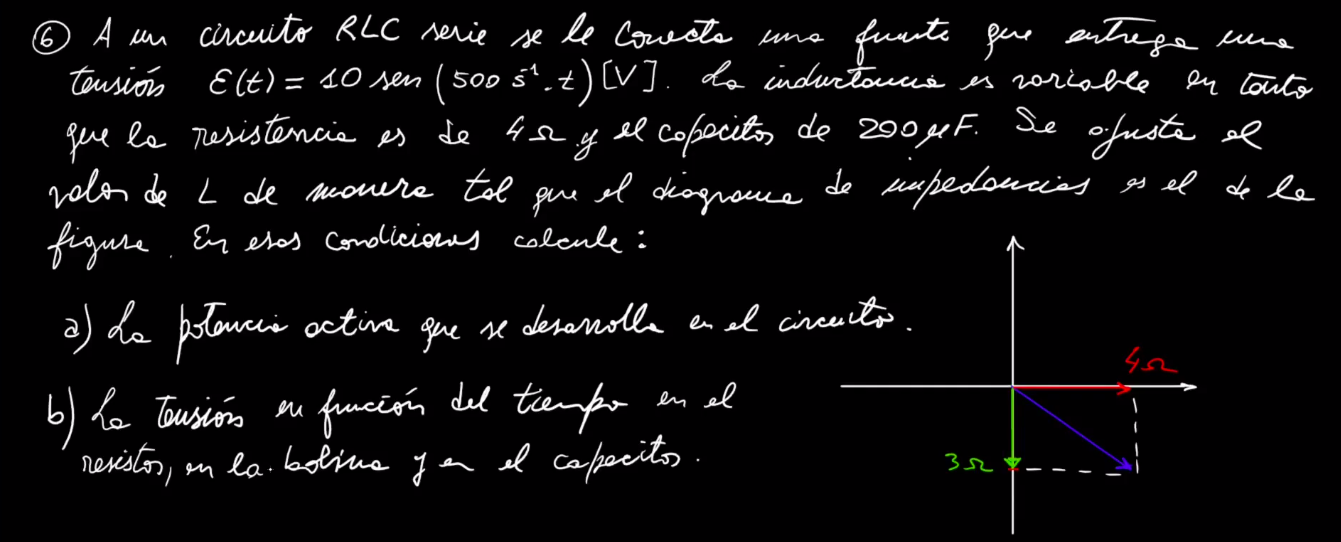 ⑥ A un circuito RLC serie se le conecta una fuente que entrega una
tensión ε(t) = 10 sen (500 s⁻¹. t) [V]. La inductancia es variable en tanto
que la resistencia es de 4Ω y el capacitor de 200 μF. Se ajusta el
valor de L de manera tal que el diagrama de impedancias es el de la
figura. En esas condiciones calcule:
a) La potencia activa que se desarrolla en el circuito.
b) La tensión en función del tiempo en el
resistor, en la bobina y en el capacitor.
4Ω
3Ω